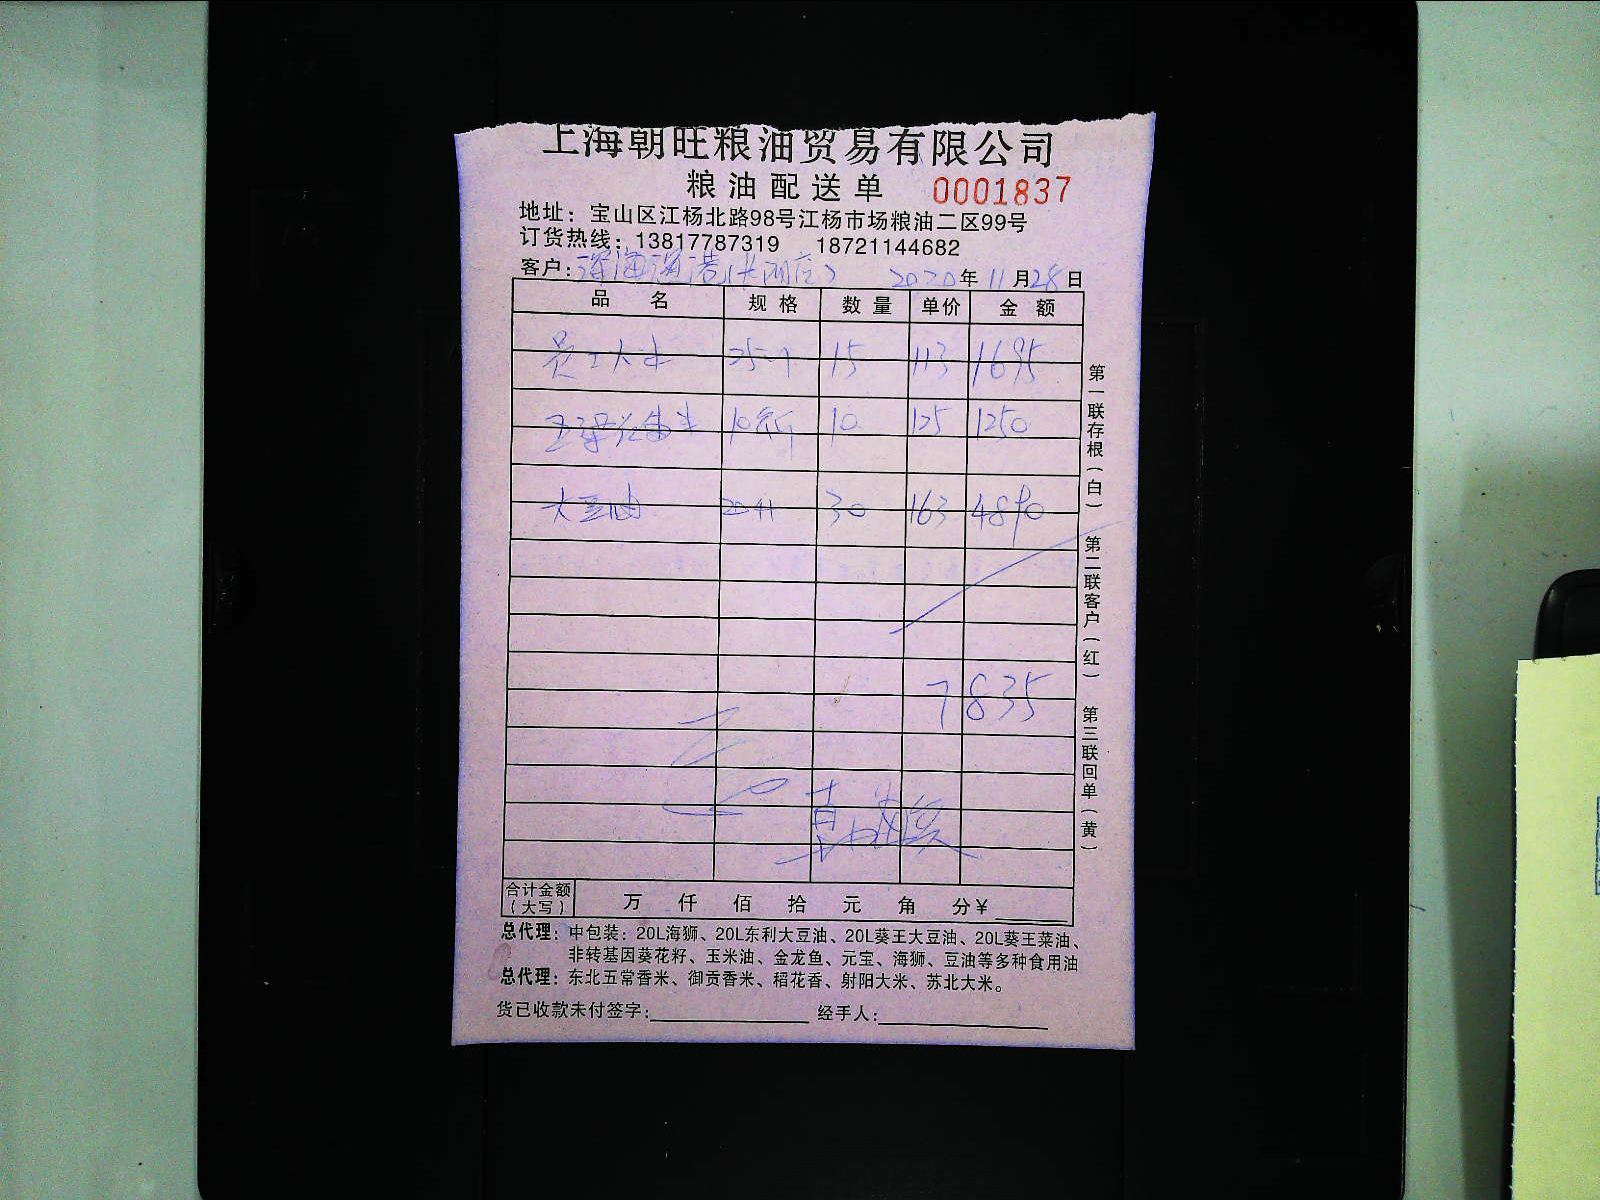 上海朝旺粮油贸易有限公司
粮油配送单 0001837
地址：宝山区江杨北路98号江杨市场粮油二区99号
订货热线：13817787319 18721144682
客户：深海渔港 2020年11月28日
品名 规格 数量 单价 金额
员工大米 25 15 113 1695
10斤 10 125 1250
大豆油 20升 30 163 4890
7835
合计金额（大写） 万 仟 佰 拾 元 角 分¥
总代理：中包装：20L海狮、20L东利大豆油、20L葵王大豆油、20L葵王菜油、
非转基因葵花籽、玉米油、金龙鱼、元宝、海狮、豆油等多种食用油
总代理：东北五常香米、御贡香米、稻花香、射阳大米、苏北大米。
货已收款未付签字： 经手人：
第一联存根（白）
第二联客户（红）
第三联回单（黄）